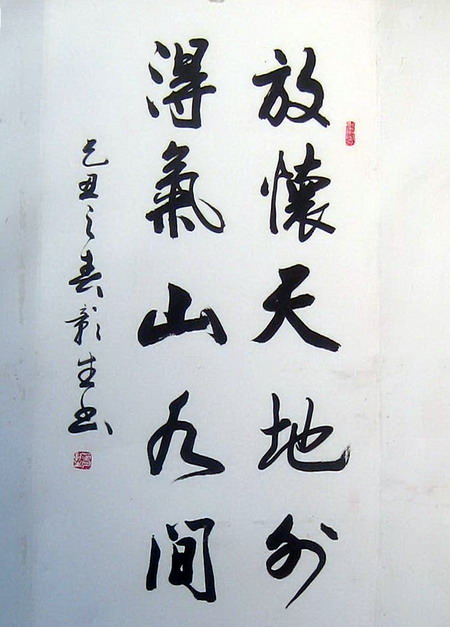 放懷天地外
得氣山水間
己丑之春彰生书